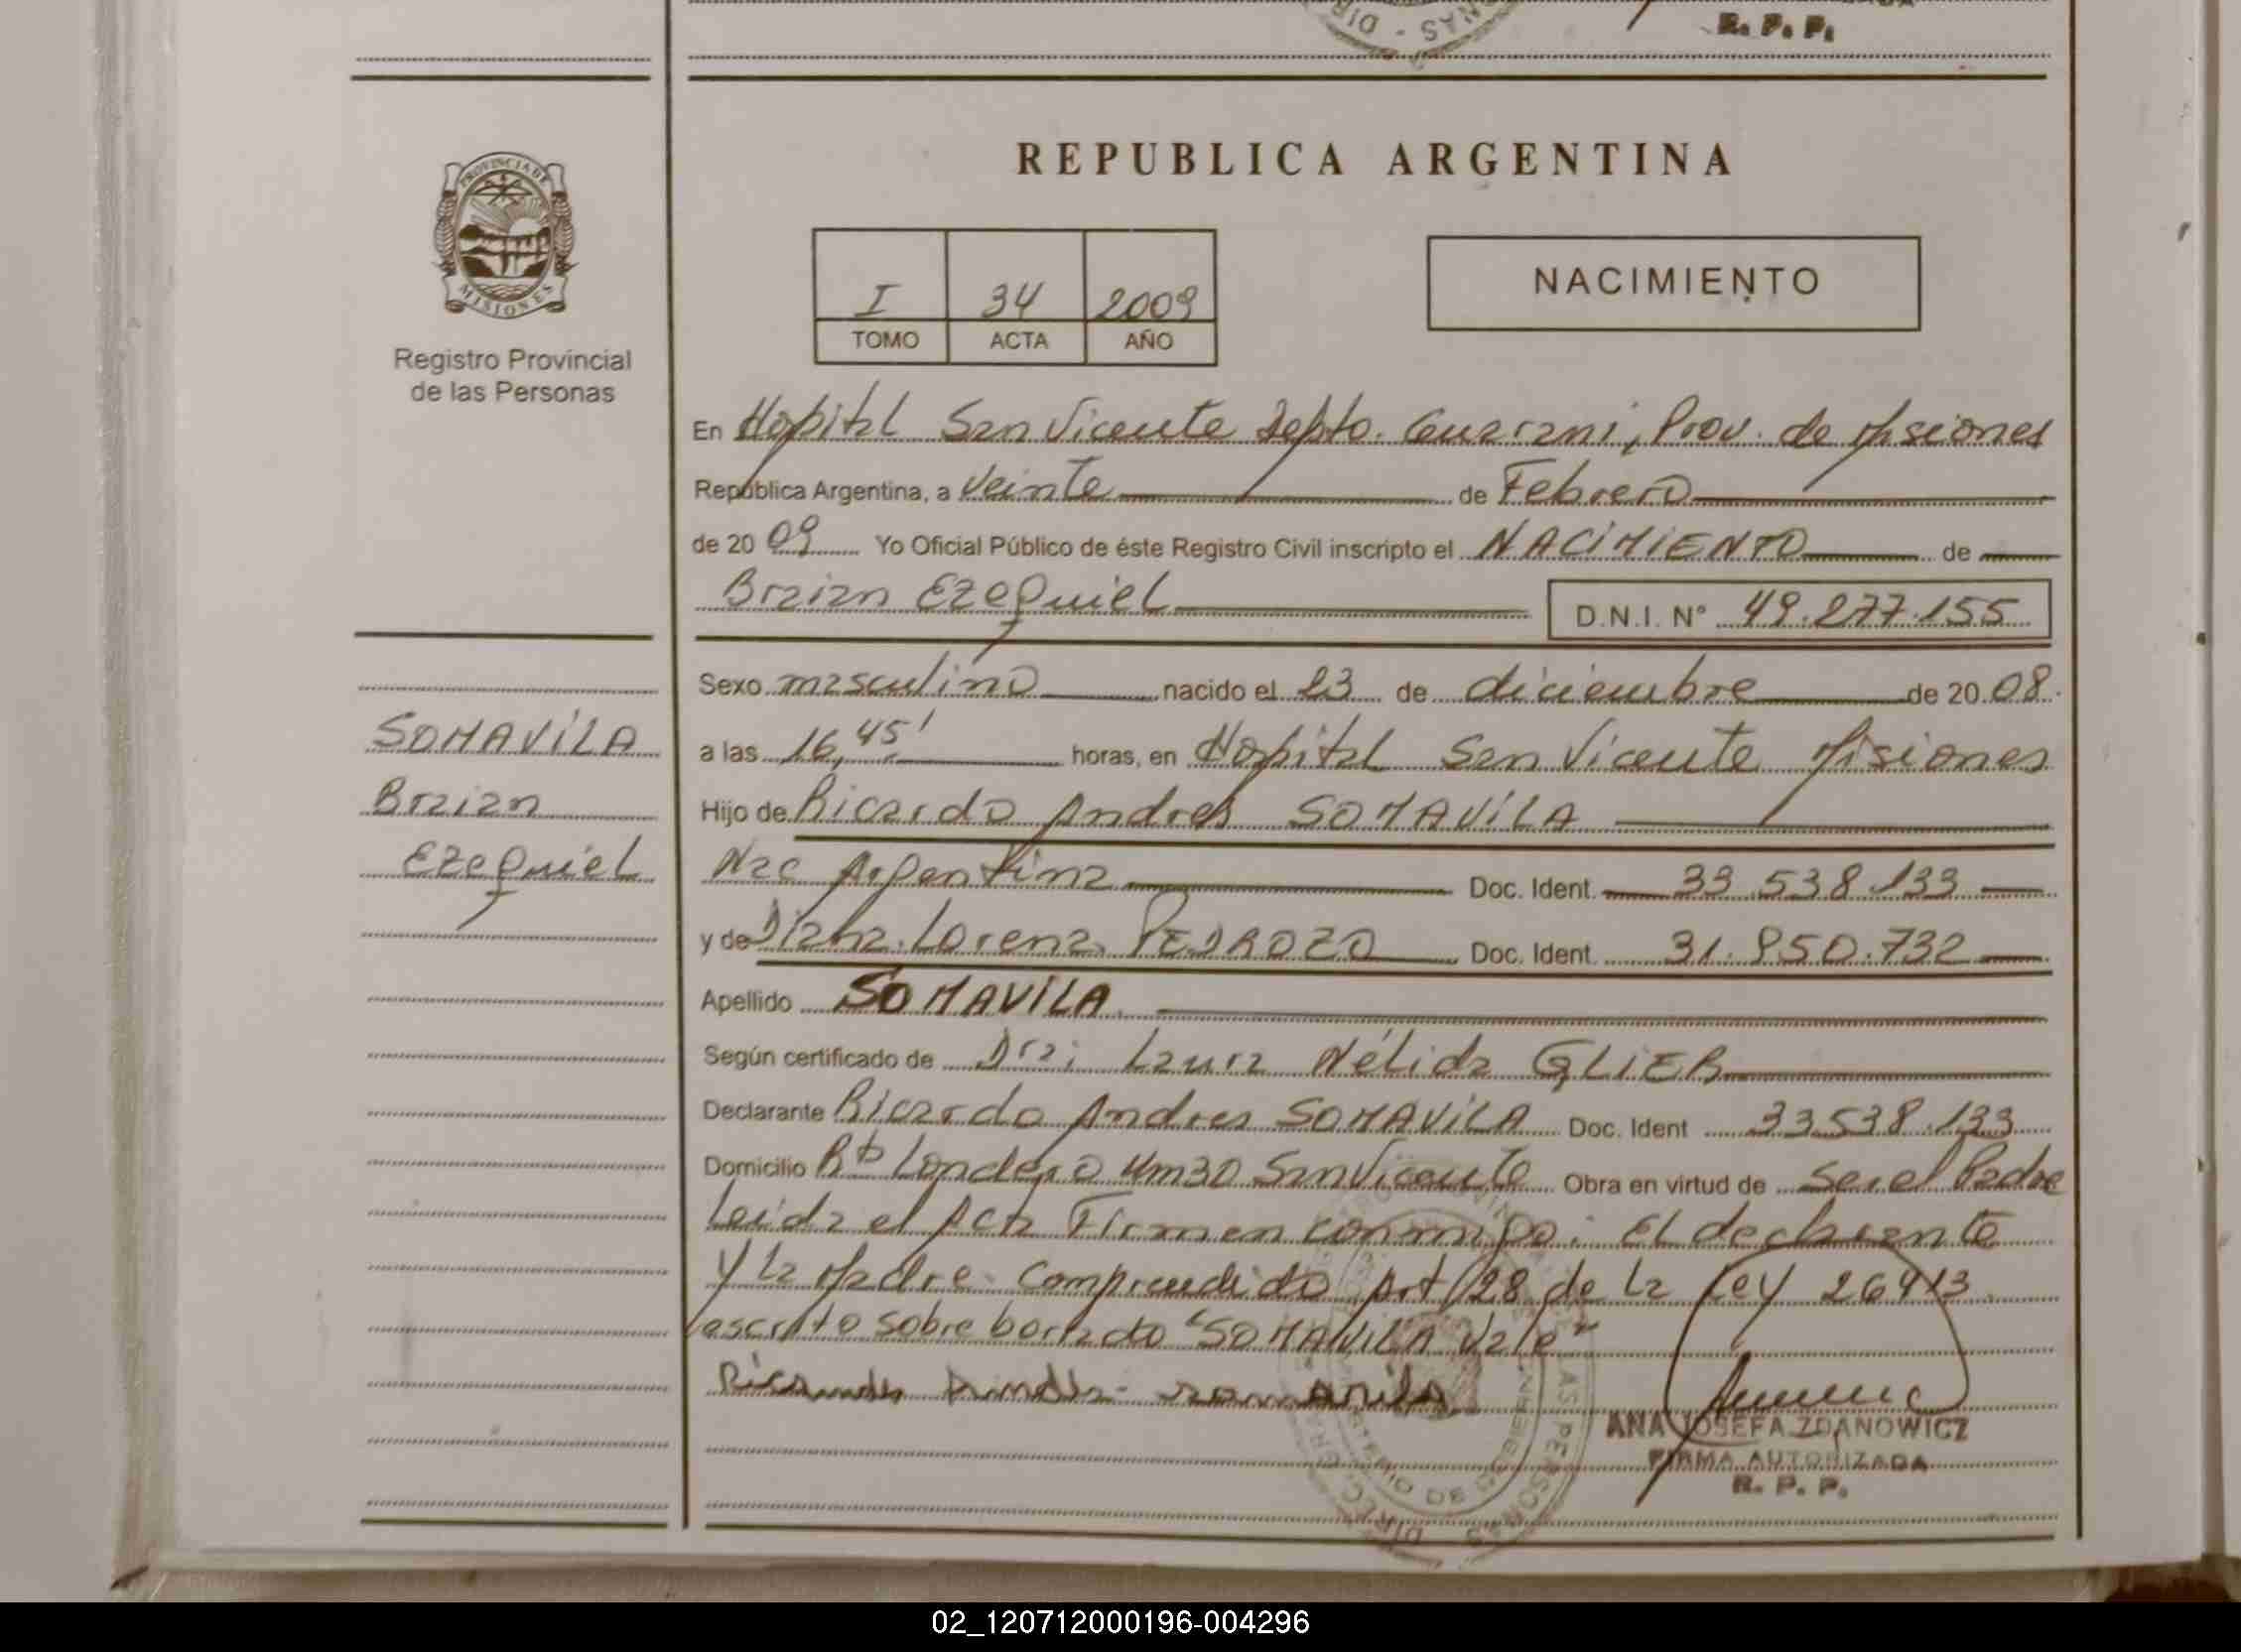 R. P. P.
PROVINCIA DE
MISIONES
Registro Provincial
de las Personas
SOMAVÍLA
Braian
Ezequiel
REPUBLICA ARGENTINA
I 34 2009
TOMO ACTA AÑO
NACIMIENTO
En Hospital San Vicente Depto. Guarani, Prov. de Misiones
República Argentina, a Veinte de Febrero
de 20 09 Yo Oficial Público de éste Registro Civil inscripto el NACIMIENTO de
Braian Ezequiel D.N.I. N° 49.277.155
Sexo masculino nacido el 23 de diciembre de 20 08
a las 16,45' horas, en Hospital San Vicente Misiones
Hijo de Ricardo Andres SOMAVÍLA
Nac Argentina Doc. Ident. 33.538.133
y de Lorena PEDROZO Doc. Ident. 31.850.732
Apellido SOMAVILA
Según certificado de Dra: Laura Nélida GLIER
Declarante Ricardo Andres SOMAVÍLA Doc. Ident 33538.133
Domicilio Londero Km30 San Vicente Obra en virtud de Ser el Padre
Leida el Acta Firman conmigo: El declarante
y la Madre. Comprendido Art 128 de la Ley 26413
escrito sobre borrado "SOMAVILA Vale"
Ricardo Andres somavila
ANA JOSEFA ZDANOWICZ
FIRMA AUTORIZADA
R. P. P.
02_120712000196-004296